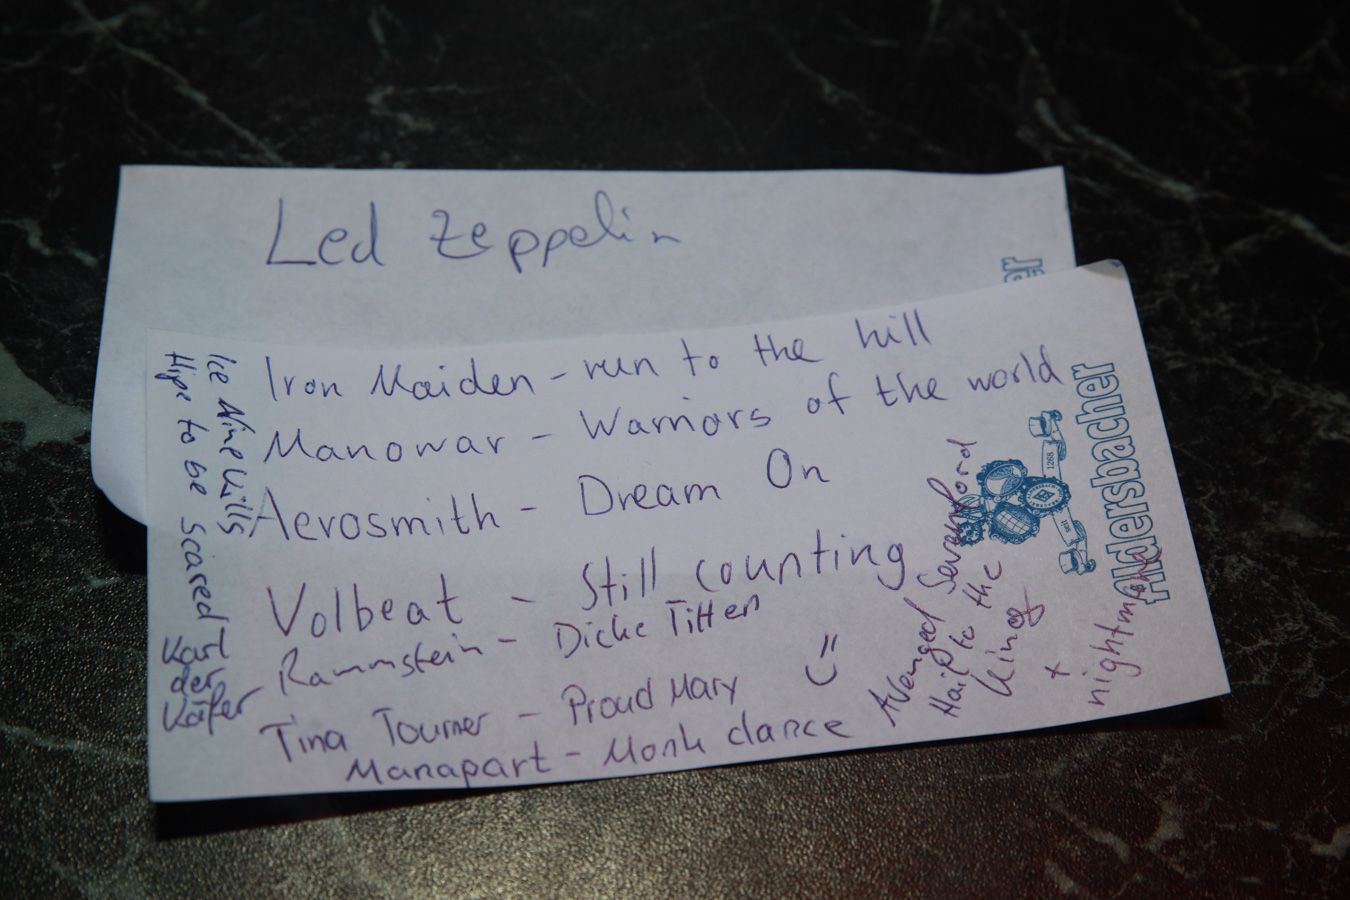 Led Zeppelin
er
Iron Maiden - run to the hill
Manowar - Warriors of the world
Aerosmith - Dream On
Volbeat - Still counting
Rammstein - Dicke Titten
Tina Tourner - Proud Mary
Manapart - Monk dance
Ice Nine Kills
Hipe to be Scared
Karl
der
Käfer
Avenged Sevenford
Hail to the
King
+
nightmare
Aldersbacher
seit 1268